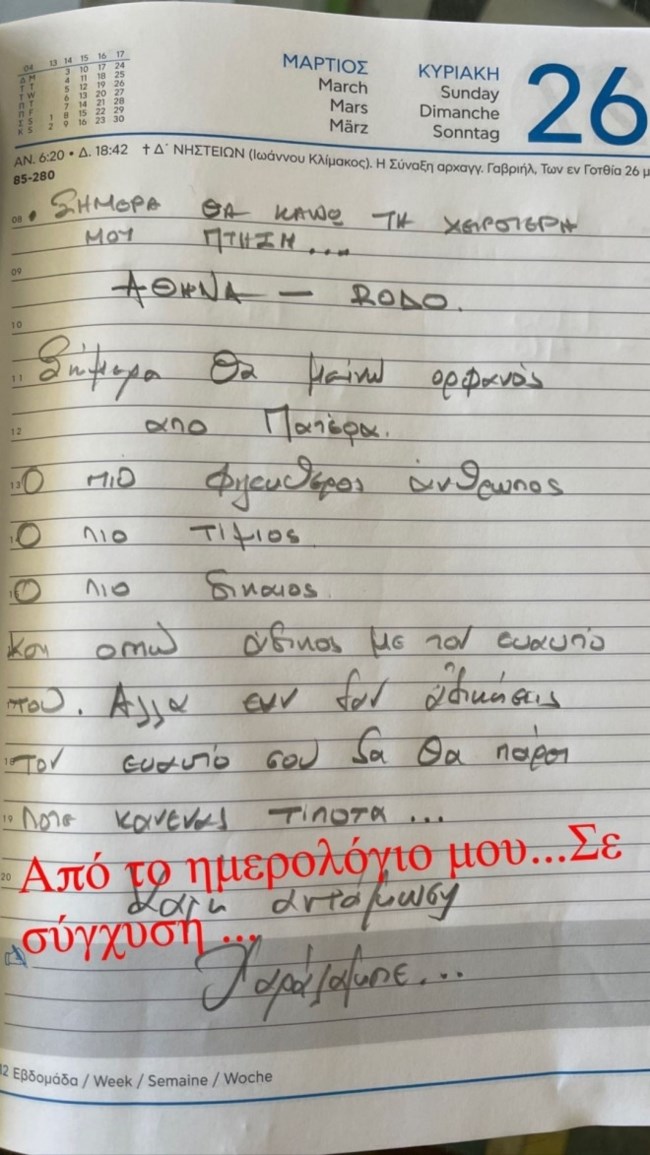 04 13 14 15 16 17
Δ M 3 10 17 24
Τ T 4 11 18 25
Τ W 5 12 19 26
Π T 6 13 20 27
Π F 7 14 21 28
Σ S 1 8 15 22 29
Κ S 2 9 16 23 30
ΜΑΡΤΙΟΣ
March
Mars
März
ΚΥΡΙΑΚΗ
Sunday
Dimanche
Sonntag
26
ΑΝ. 6:20 • Δ. 18:42 ✝ Δ΄ ΝΗΣΤΕΙΩΝ (Ιωάννου Κλίμακος). Η Σύναξη αρχαγγ. Γαβριήλ, Των εν Γοτθία 26 μ
85-280
08 • ΣΗΜΕΡΑ ΘΑ ΚΑΝΩ ΤΗ ΧΕΙΡΟΤΕΡΗ
ΜΟΥ ΠΤΗΣΗ...
09
ΑΘΗΝΑ — RODO.
10
11 Σήμερα θα μείνω ορφανός
12 απο Πατέρα.
13 Ο πιο άνθρωπος
Ο πιο τίμιος
Ο πιο δικαιος.
και άδικος με τον ευαυτό
του. Αλλα εαν δεν αδικήσεις
18 Τον ευαυτό σου δα θα πάρει
19 Ποτε κανενας τιποτα...
20 Από το ημερολόγιο μου...Σε
σύγχυση ...
Καλη αντάμωση
Χαράλαμπε...
12 Εβδομάδα / Week / Semaine / Woche